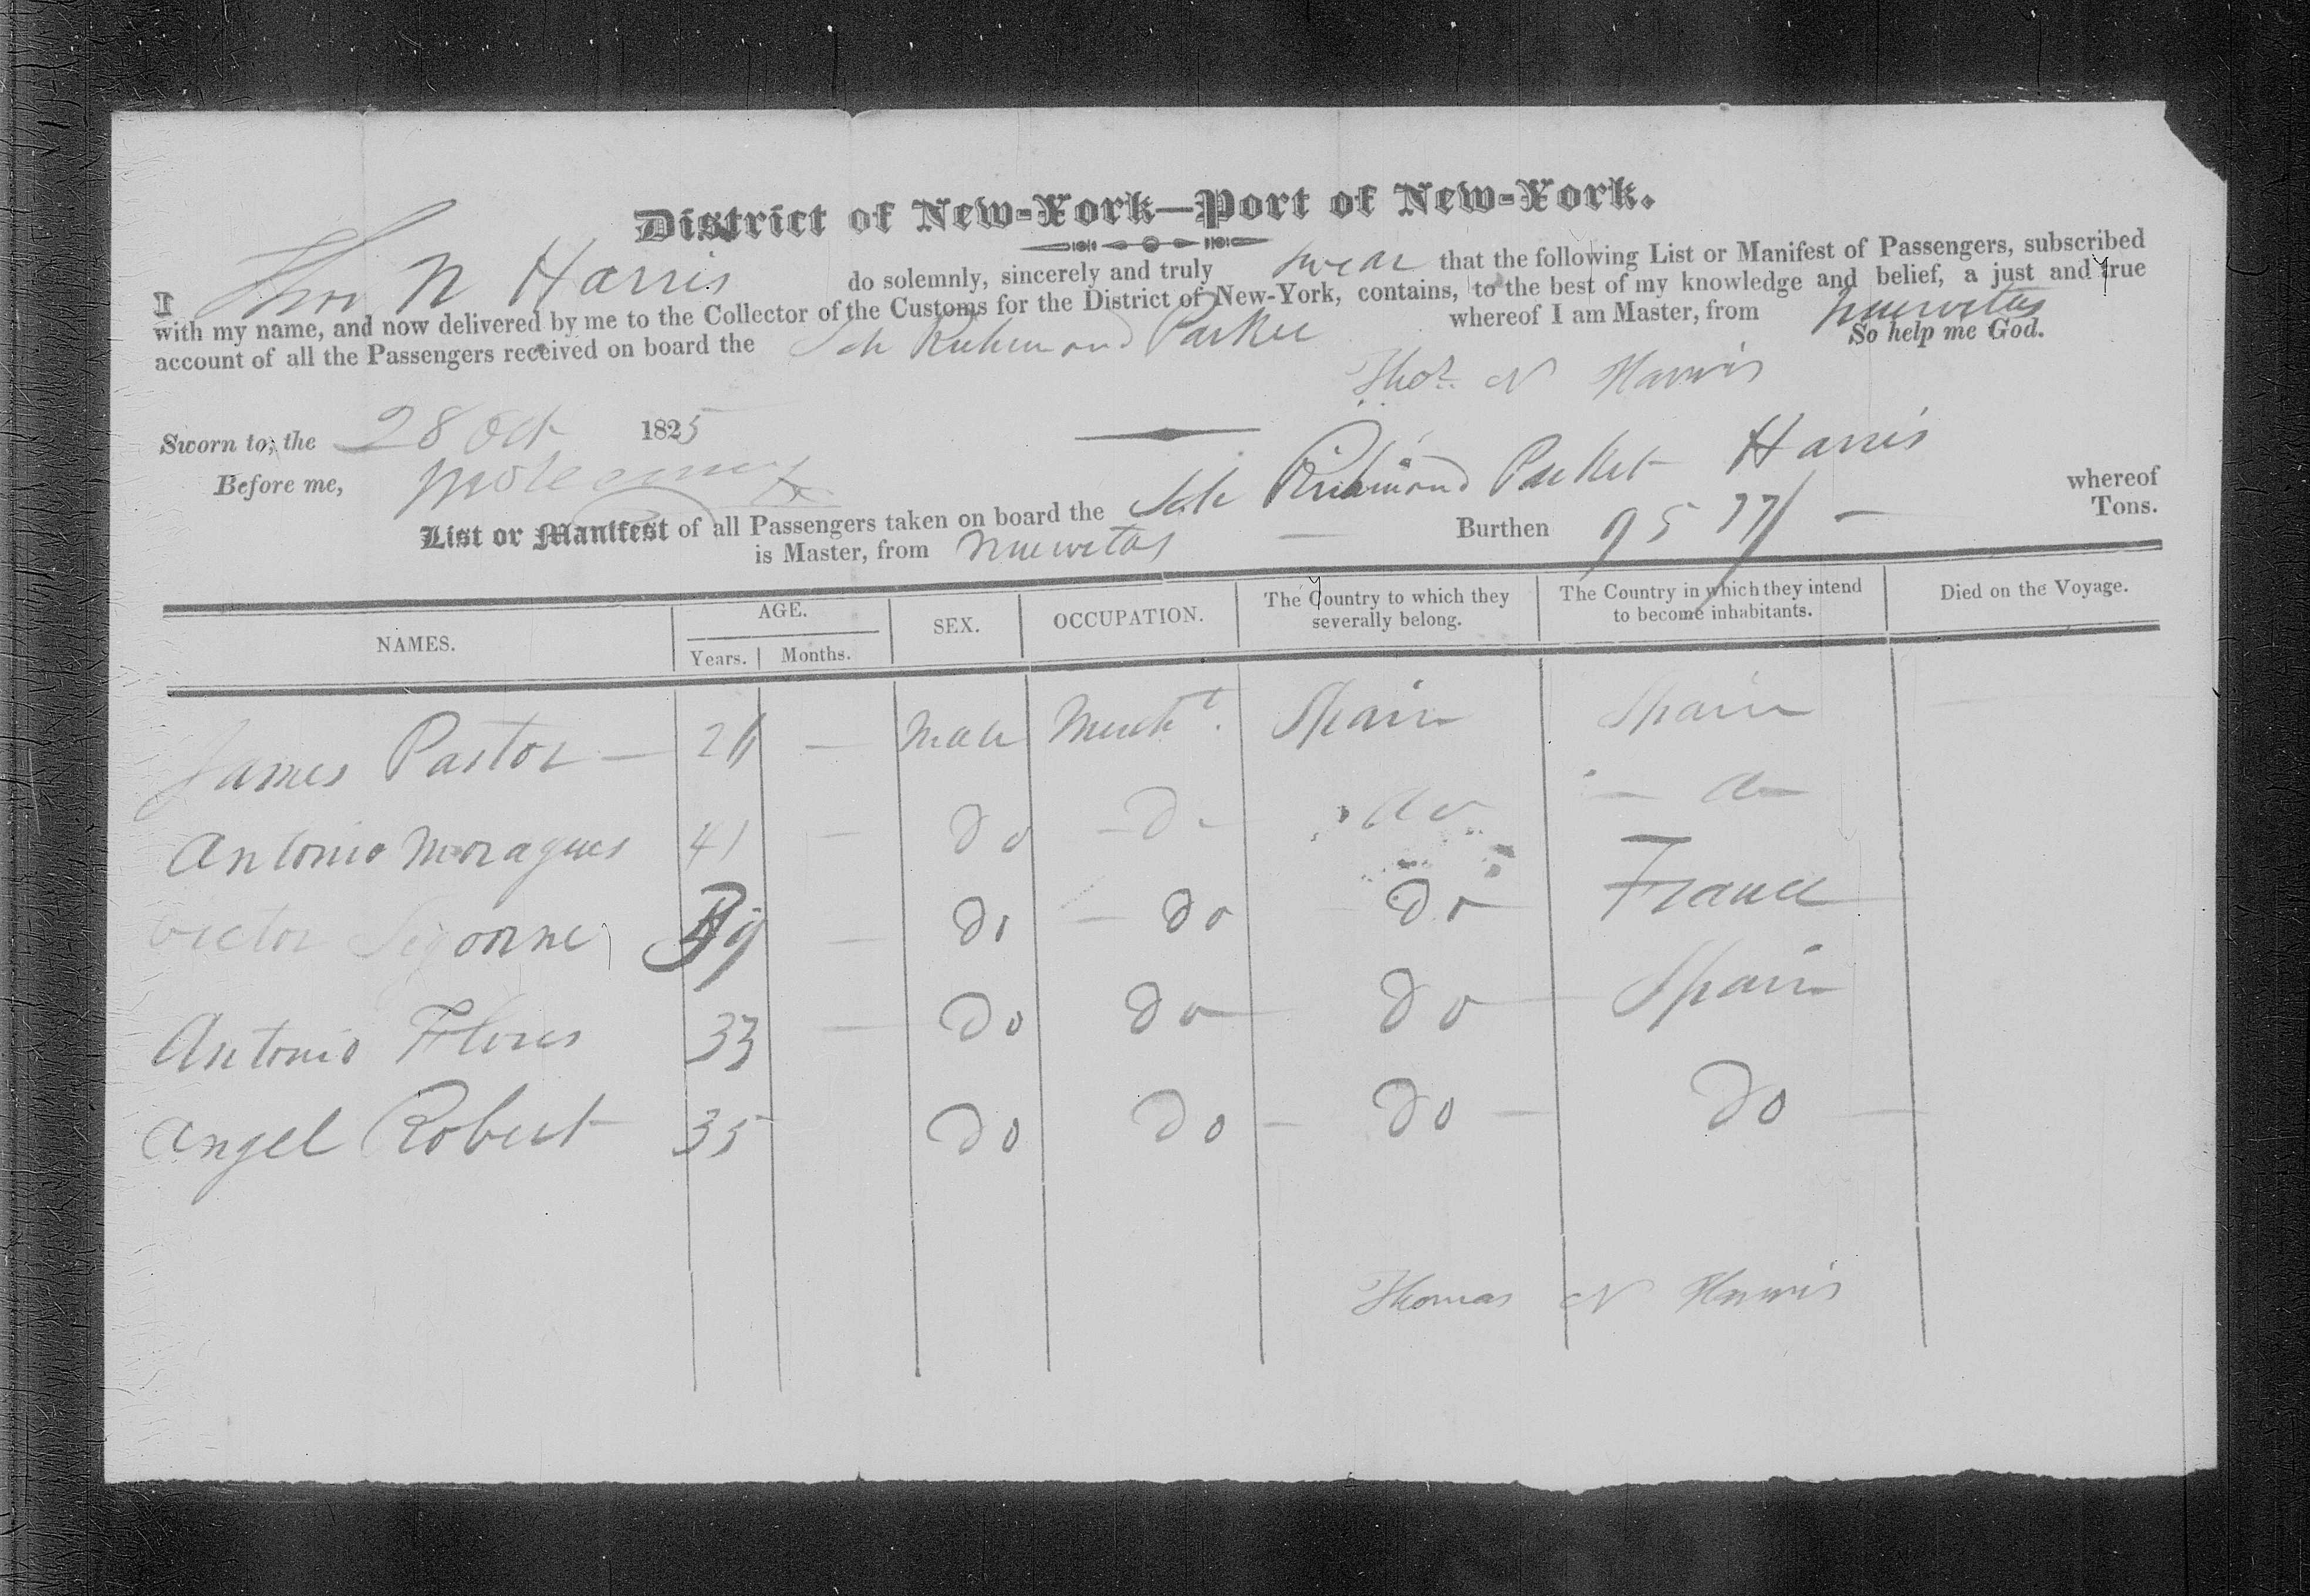 District of New-York—Port of New-York.
I Thos N Harris do solemnly, sincerely and truly swear that the following List or Manifest of Passengers, subscribed
with my name, and now delivered by me to the Collector of the Customs for the District of New-York, contains, to the best of my knowledge and belief, a just and true
account of all the Passengers received on board the Sch Richmond Packet whereof I am Master, from Nuevitas
So help me God.
Thos. N Harris
Sworn to, the 28 Oct 1825
Before me,
List or Manifest of all Passengers taken on board the Sch Richmond Packet Harris whereof
is Master, from Nuevitas Burthen 95 77/ Tons.
NAMES. AGE. SEX. OCCUPATION. The Country to which they severally belong. The Country in which they intend to become inhabitants. Died on the Voyage.
Years. Months.
James Pastor — 26 — Male Mercht. Spain Spain
Antonio Moragues 41 — Do — Do — do — do
Victor — Do — Do Do France
Antonio Flores 33 — Do Do Do Spain
Angel Robert 35 Do Do — Do — Do
Thomas N Harris